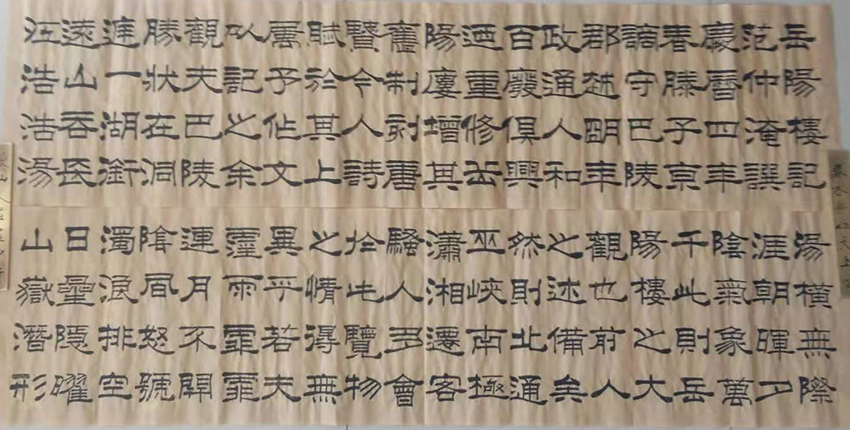 岳陽樓記
范仲淹譔
慶曆四年
春滕子京
謫守巴陵
郡越明年
政通人和
百廢俱興
迺重修岳
陽廔增其
舊制刻唐
賢今人詩
賦於其上
屬予作文
以記之余
觀夫巴陵
勝狀在洞
庭一湖銜
遠山吞長
江浩浩湯
湯橫無際
涯朝暉夕
陰氣象萬
千此則岳
陽樓之大
觀也前人
之述備矣
然則北通
巫峽南極
瀟湘遷客
騷人多會
於此覽物
之情得無
異乎若夫
霪雨霏霏
連月不開
陰風怒號
濁浪排空
日星隱曜
山嶽潛形